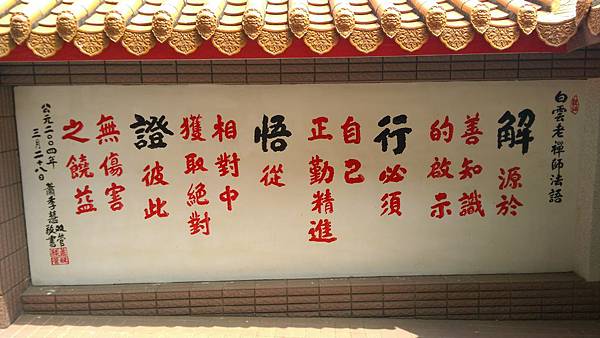 白雲老禪師法語
解源於
善知識
的啟示
行必須
自己
正勤精進
悟從
相對中
獲取絕對
證彼此
無傷害
之饒益
公元二○○四年
三月二十八日
蕭季慧
敬書